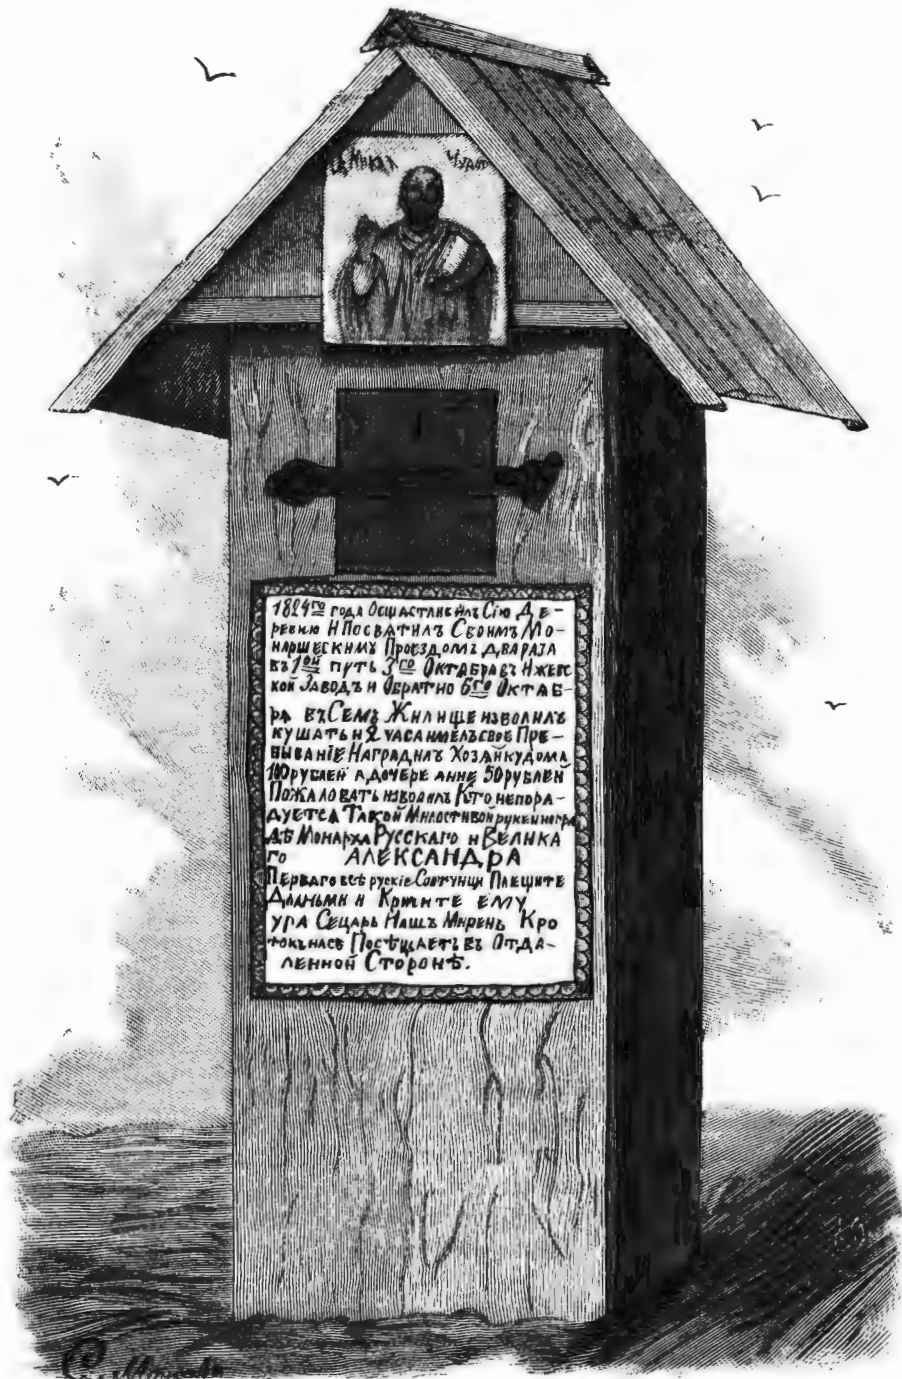 Никол Чудот
1824го года Осщастливилъ Сію Де-
ревню И Посвятилъ Своимъ Мо-
наршескимъ Проѣздомъ два раза
въ 1ой путь 3го Октября въ Ижевс
кой Заводъ и Обратно 6го Октяб-
ря въ Семъ Жилище изволилъ
кушать и 2 часа имелъ свое Пре-
бываніе Наградилъ Хозяйку дома
100 рублей а дочере анне 50 рублей
Пожаловать изволилъ Кто непора-
дуется Такой Милостивой руке и награ
дѣ Монарха Русскаго и Велика
го АЛЕКСАНДРА
Перваго всѣ рускіе Плещите
Дланьми и Кричите ему
ура Сецарь Нашъ Миренъ Кро
токъ насъ Посѣщаетъ въ Отда-
ленной Сторонѣ.